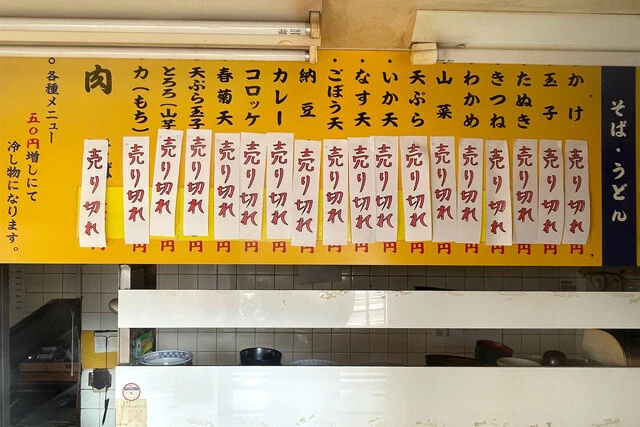 そば・うどん
かけ
売り切れ
円
玉子
売り切れ
円
たぬき
売り切れ
円
きつね
売り切れ
円
わかめ
売り切れ
円
山菜
売り切れ
円
天ぷら
売り切れ
円
いか天
売り切れ
円
なす天
売り切れ
円
ごぼう天
売り切れ
円
納豆
売り切れ
カレー
売り切れ
円
コロッケ
売り切れ
円
春菊天
売り切れ
円
天ぷら玉子
売り切れ
円
とろろ(山芋
売り切れ
円
力(もち)
売り切れ
円
肉
売り切れ
各種メニュー
五〇円増しにて
冷し物になります。